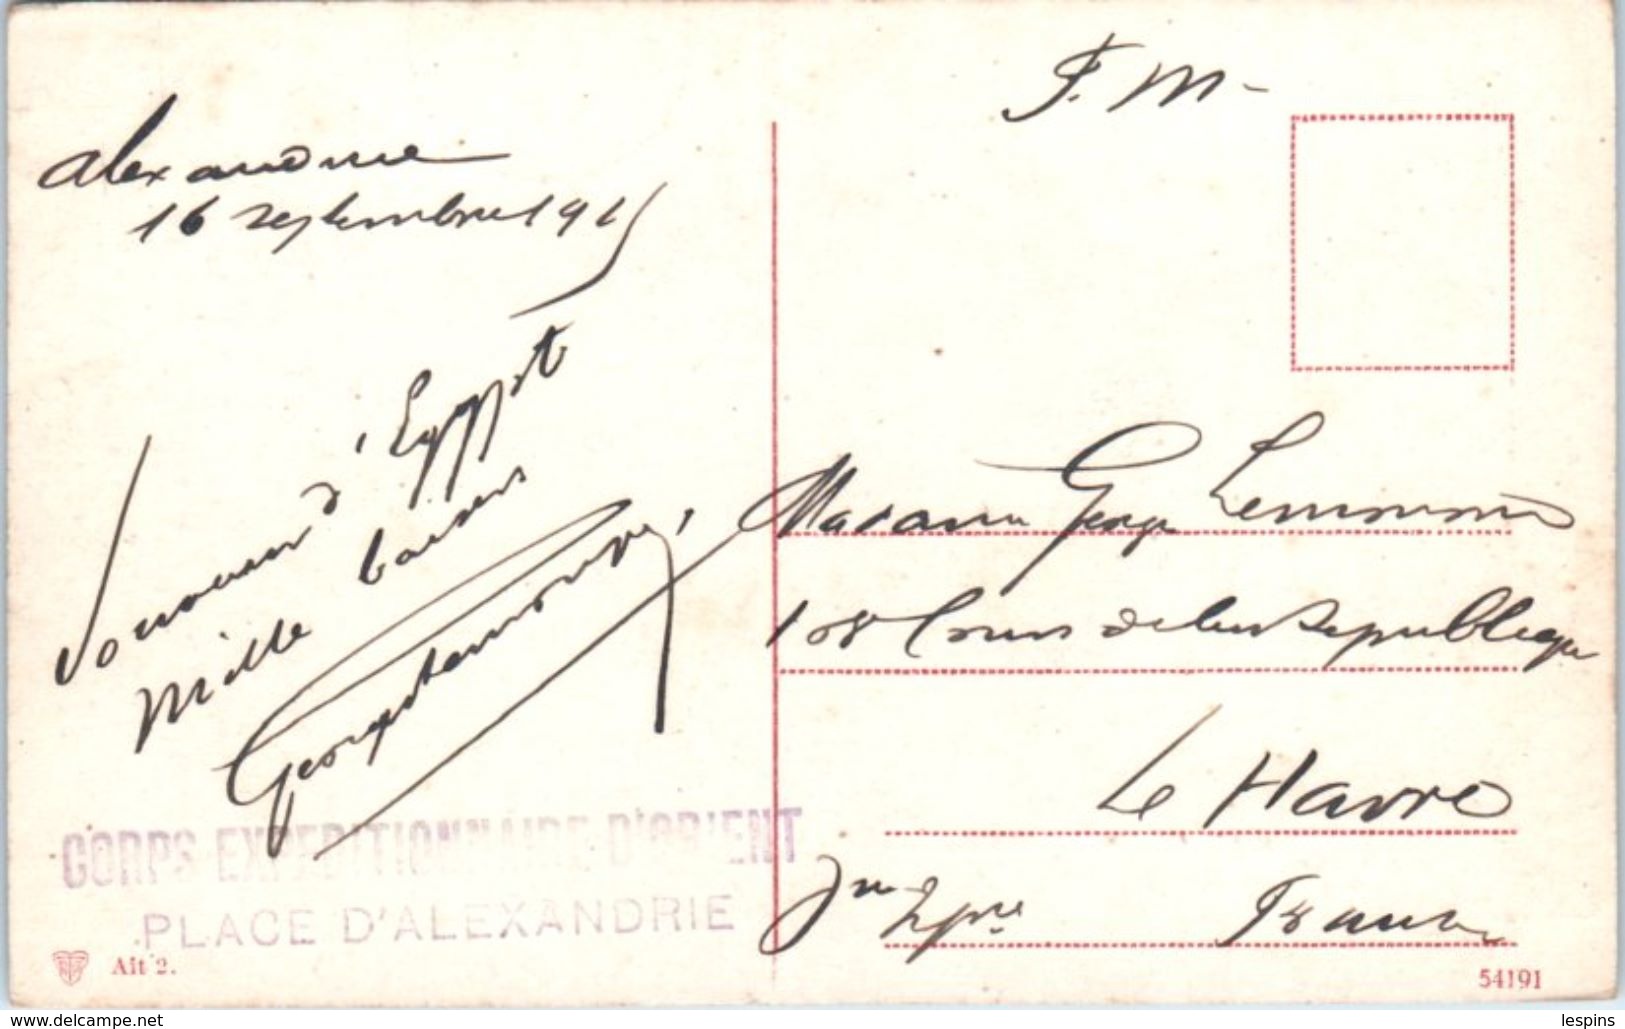 F. M-
Alexandrie
16 septembre 1915
Souvenir d'Egypt
Mille baisers
Georges Lemonnier
Madame Georges Lemonnier
108 Cours de la Republique
Le Havre
Sne Infre France
CORPS EXPEDITIONNAIRE D'ORIENT
PLACE D'ALEXANDRIE
Ait 2.
54191
www.delcampe.net
lespins